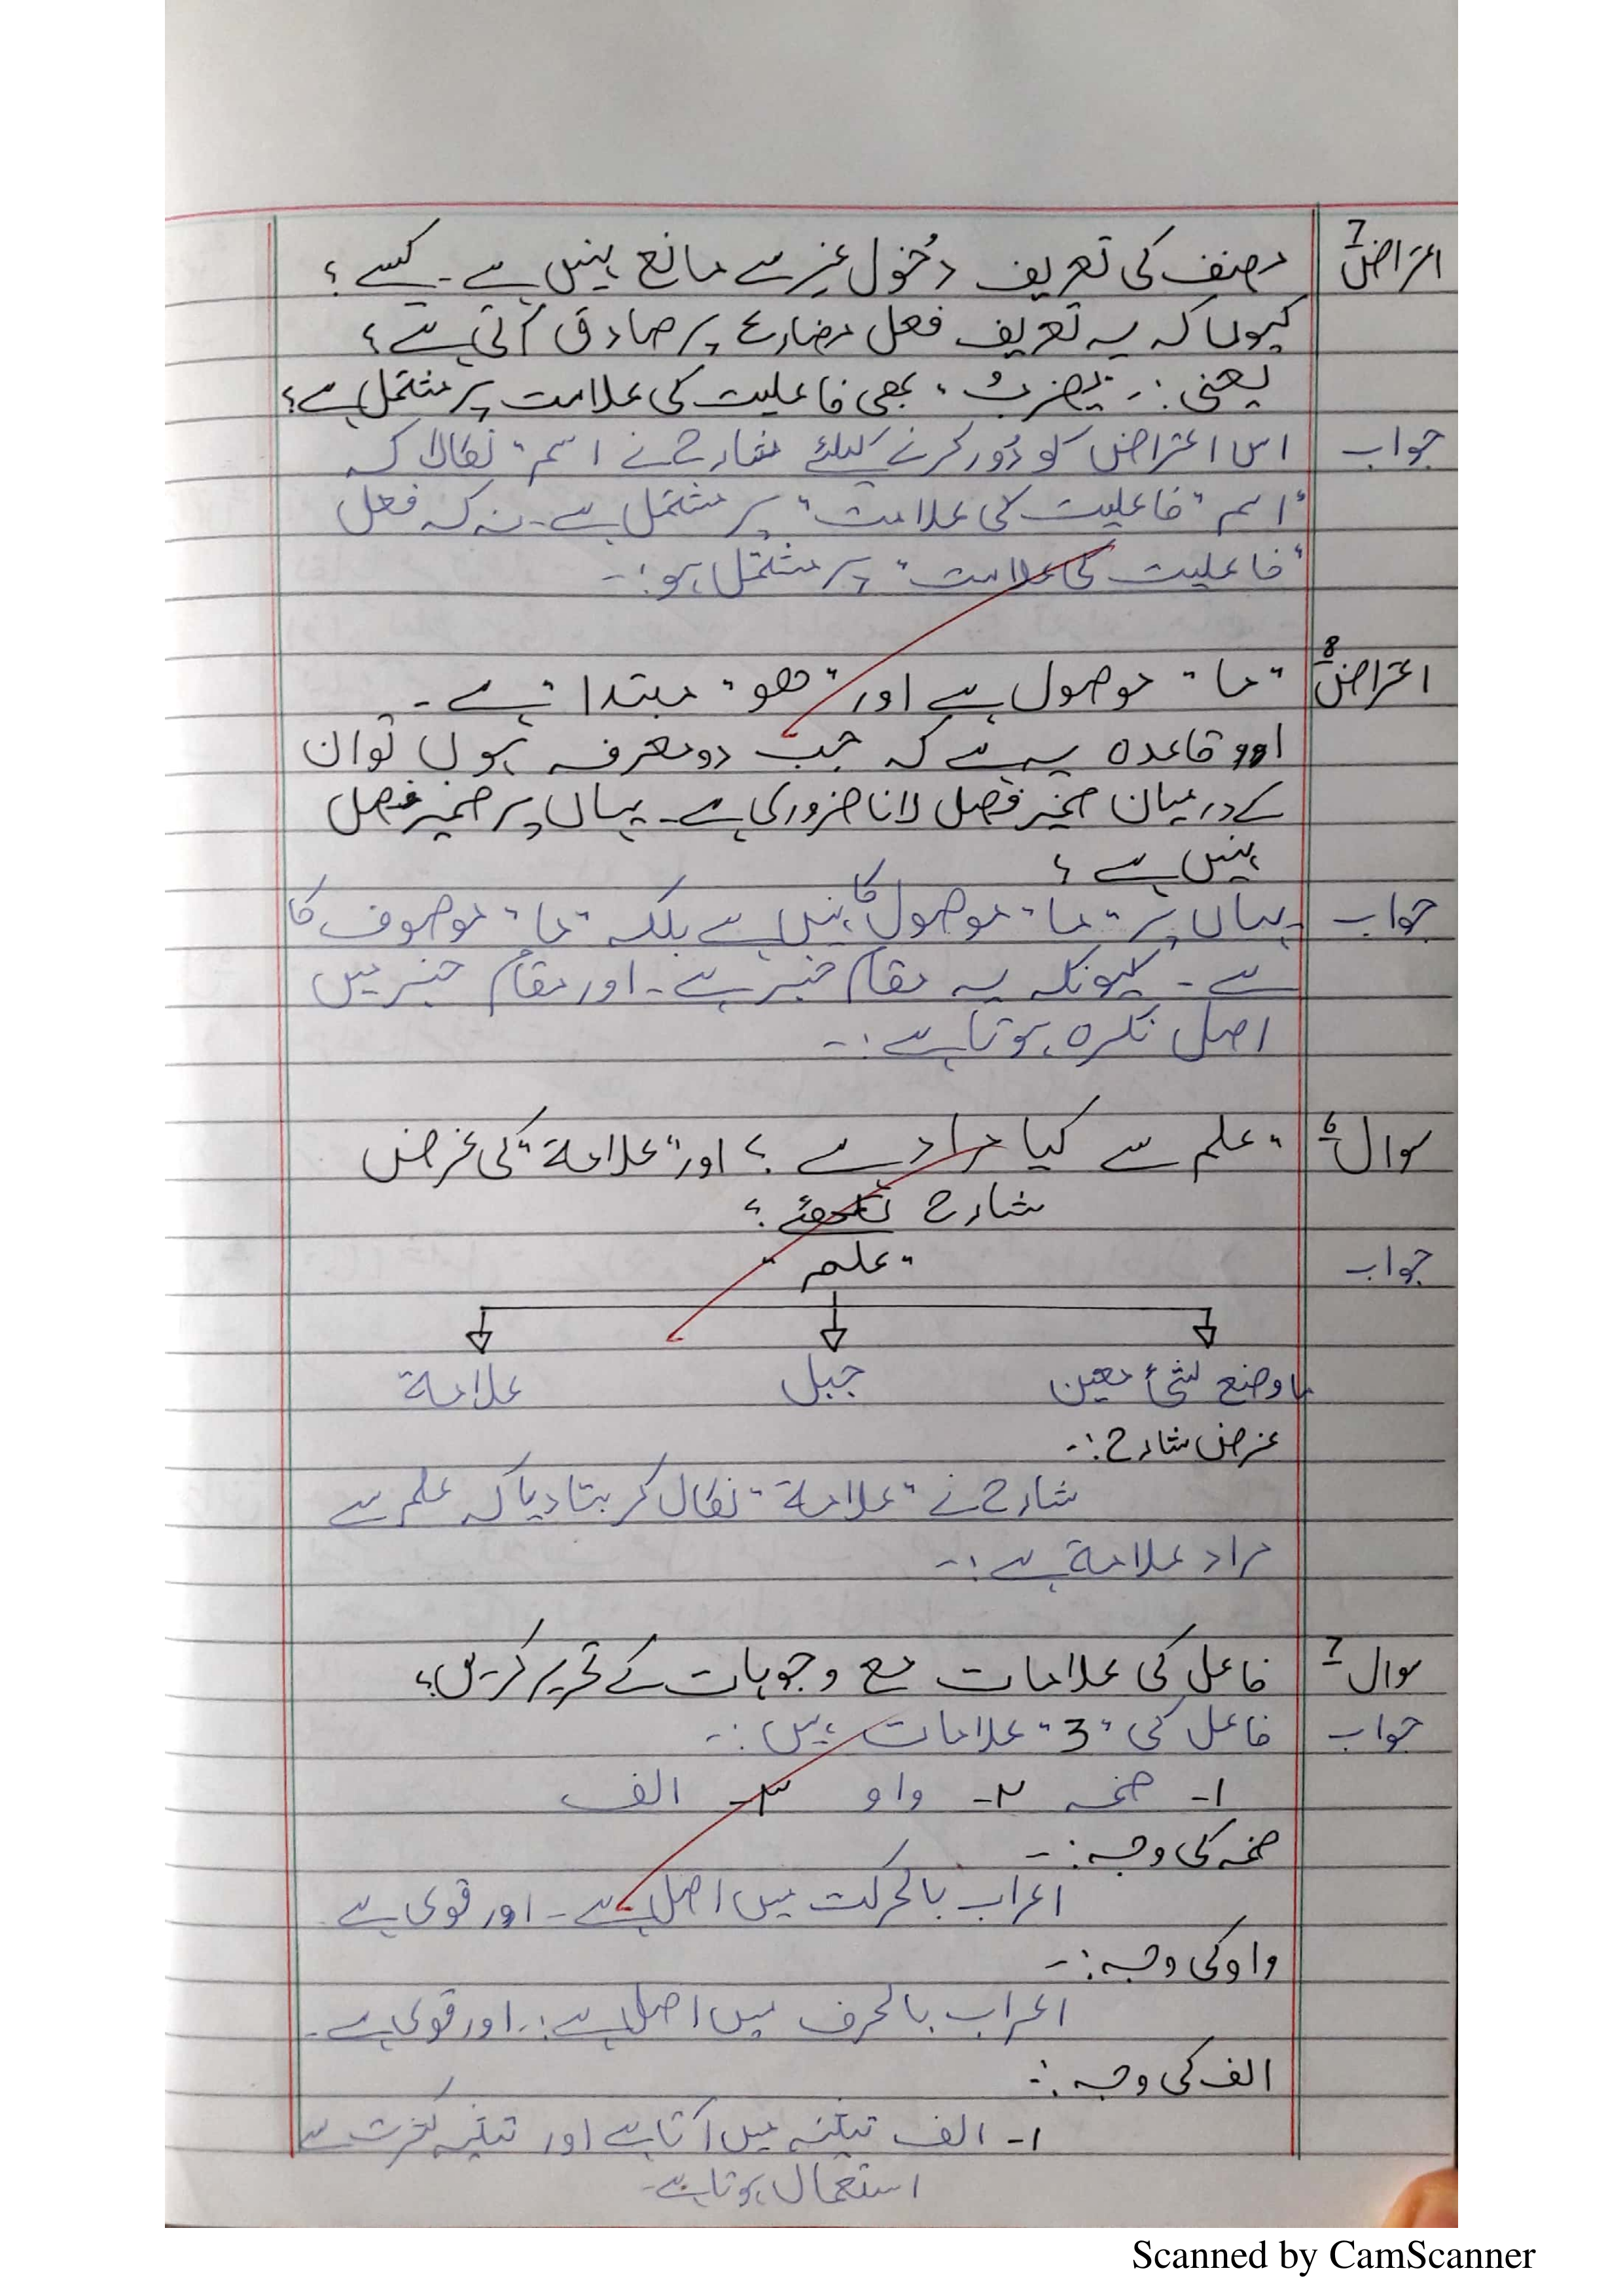 اعتراض 7 مصنف کی تعریف دُخول غیر سے مانع نہیں ہے۔ کیسے؟
کیوں کہ یہ تعریف فعل مضارع پر صادق آتی ہے؟
یعنی :۔ یضربُ، بھی فاعلیت کی علامت پر مشتمل ہے؟
جواب اس اعتراض کو دُور کرنے کیلئے شارح نے اسم" نکالا کہ
"اسم "فاعلیت کی علامت" پر مشتمل ہے۔ نہ کہ فعل
"فاعلیت کی علامت" پر مشتمل ہو:۔
اعتراض 8 "ما" موصول ہے اور "ھو" مبتدا ہے۔
اور قاعدہ یہ ہے کہ جب دو معرفہ ہوں تو ان
کے درمیان ضمیر فصل لانا ضروری ہے۔ یہاں پر ضمیر فصل
نہیں ہے؟
جواب یہاں پر "ما" موصول کا نہیں ہے بلکہ "ما" موصوف کا
ہے۔ کیونکہ یہ مقام خبر ہے۔ اور مقام خبر میں
اصل نکرہ ہوتا ہے:۔
سوال 6 "علم سے کیا مراد ہے؟ اور "علامۃ" کی غرض
شارح لکھئے؟
جواب "علم"
ما وضع لشئ معین جبل علامۃ
غرض شارح:۔
شارح نے "علامۃ" نکال کر بتا دیا کہ علم سے
مراد علامۃ ہے:۔
سوال 7 فاعل کی علامات مع وجوہات کے تحریر کریں؟
جواب فاعل کی "3" علامات ہیں:۔
۱۔ ضمہ ۲۔ واو ۳۔ الف
ضمہ کی وجہ:۔
اعراب بالحرکت میں اصل ہے۔ اور قوی ہے
واو کی وجہ:۔
اعراب بالحرف میں اصل ہے:۔ اور قوی ہے۔
الف کی وجہ:۔
۱۔ الف تثنیہ میں آتا ہے اور تثنیہ کثرت سے
استعمال ہوتا ہے۔
Scanned by CamScanner